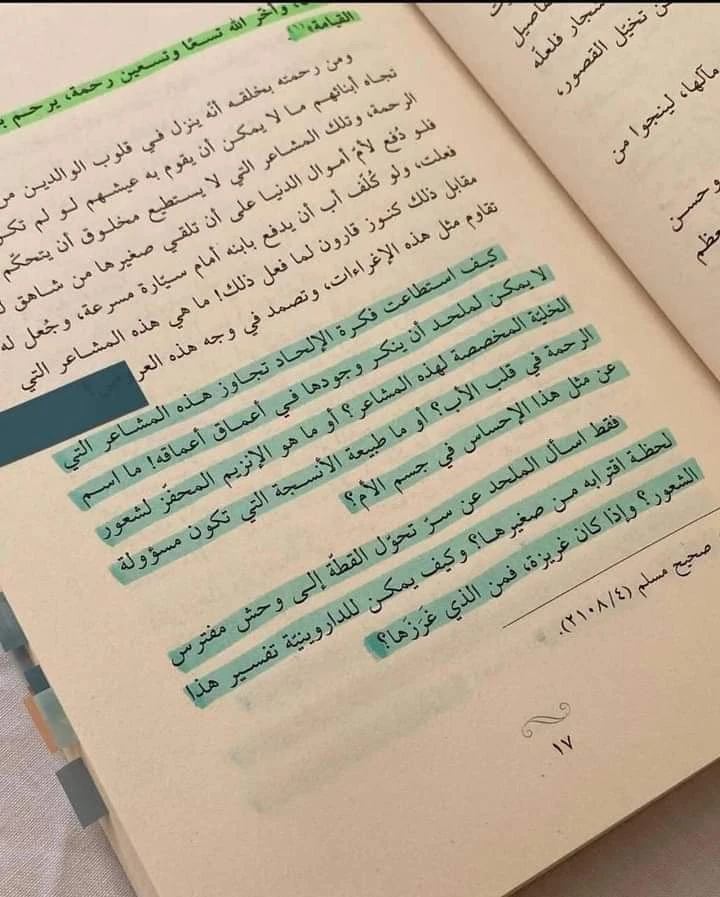 وأخّر الله تسعًا وتسعين رحمة، يرحم
القيامة»(١).
ومن رحمته بخلقه أنّه ينزل في قلوب الوالدين من
تجاه أبنائهم ما لا يمكن أن يقوم به عيشهم لو لم تكن
الرحمة، وتلك المشاعر التي لا يستطيع مخلوق أن يتحكّم
فلو دُفع لأمّ أموال الدنيا على أن تلقي صغيرها من شاهق
فعلت، ولو كُلّف أب أن يدفع بابنه أمام سيّارة مسرعة، وجُعل له
مقابل ذلك كنوز قارون لما فعل ذلك! ما هي هذه المشاعر التي
تقاوم مثل هذه الإغراءات، وتصمد في وجه هذه
كيف استطاعت فكرة الإلحاد تجاوز هذه المشاعر التي
لا يمكن لملحد أن ينكر وجودها في أعماق أعماقه! ما اسم
الخليّة المخصصة لهذه المشاعر؟ أو ما هو الإنزيم المحفّز لشعور
الرحمة في قلب الأب؟ أو ما طبيعة الأنسجة التي تكون مسؤولة
عن مثل هذا الإحساس في جسم الأم؟
فقط اسأل الملحد عن سرّ تحوّل القطّة إلى وحش مفترس
لحظة اقترابه من صغيرها؟ وكيف يمكن للداروينيّة تفسير هذا
الشعور؟ وإذا كان غريزة، فمن الذي غَرَزَها؟
صحيح مسلم (٢١٠٨/٤).
١٧
ن تخيّل القصور،
سجار فلعلّه
مآلها، لينجوا من
وحسن